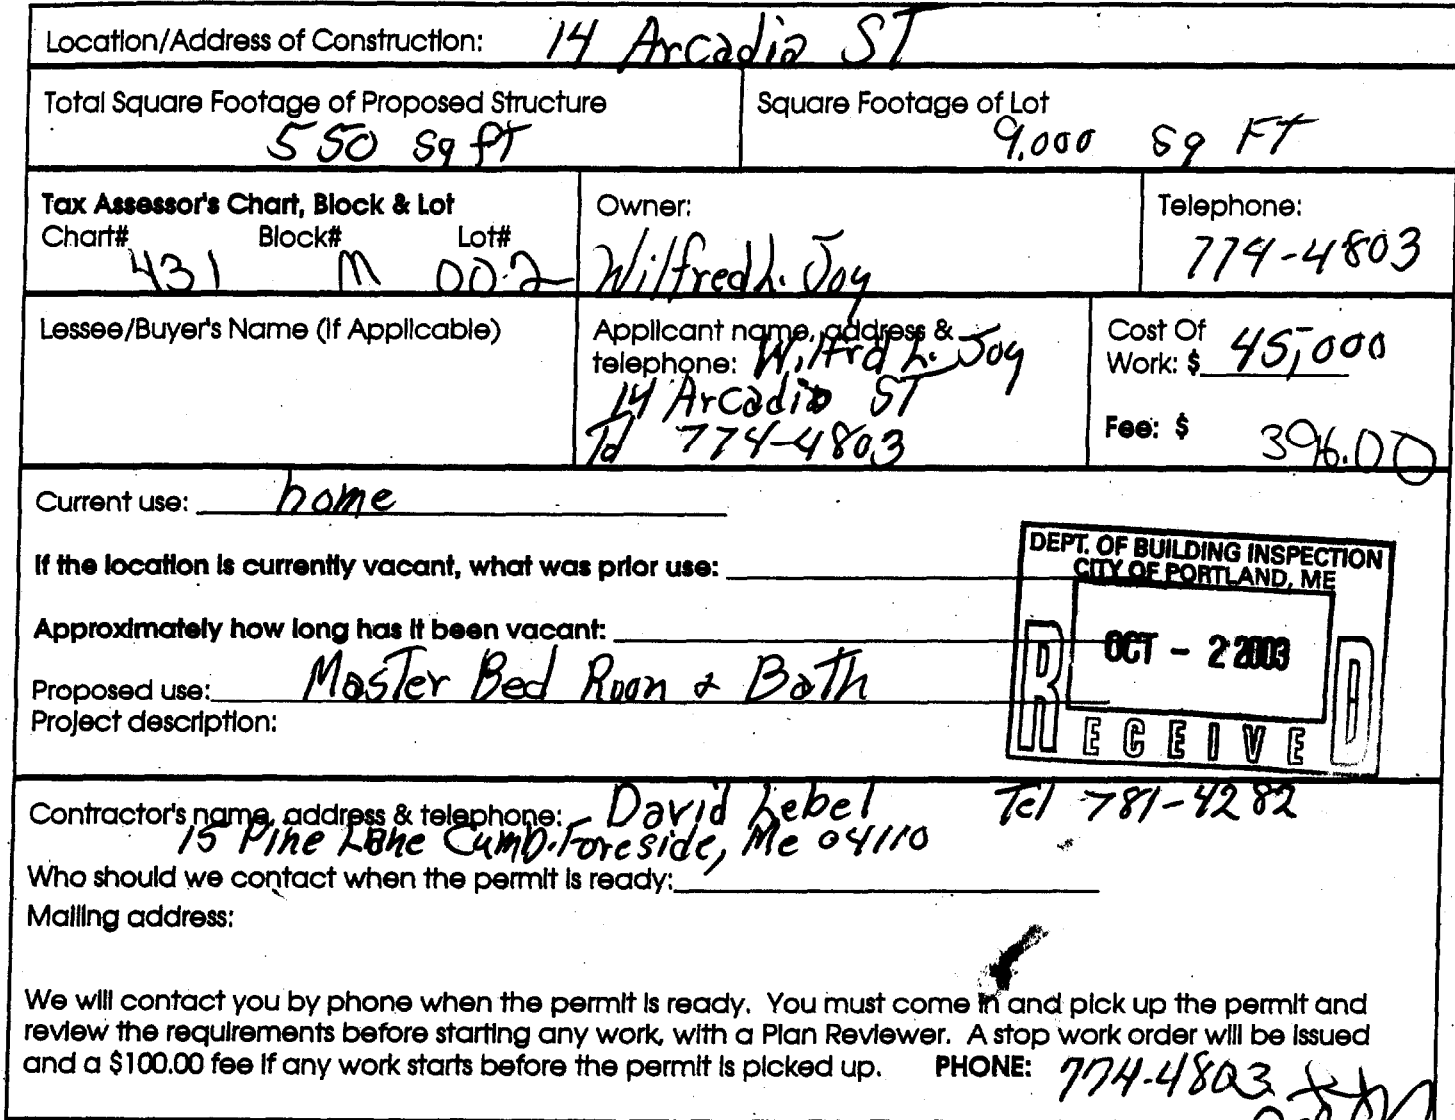 Location/Address of Construction: 14 Arcadia ST
Total Square Footage of Proposed Structure
550 sq ft
Square Footage of Lot
9,000 sq FT
Tax Assessor's Chart, Block & Lot
Chart# Block# Lot#
431 M 002
Owner:
Wilfred L. Joy
Telephone:
774-4803
Lessee/Buyer's Name (If Applicable)
Applicant name, address &
telephone: Wilfrd L. Joy
14 Arcadia ST
Tel 774-4803
Cost Of
Work: $ 45,000
Fee: $ 396.00
Current use: home
If the location is currently vacant, what was prior use:
Approximately how long has it been vacant:
Proposed use: Master Bed Room & Bath
Project description:
DEPT. OF BUILDING INSPECTION
CITY OF PORTLAND, ME
OCT - 2 2003
RECEIVED
Contractor's name, address & telephone: David Lebel Tel 781-4282
15 Pine Lane Cumb. Foreside, Me 04110
Who should we contact when the permit is ready:
Mailing address:
We will contact you by phone when the permit is ready. You must come in and pick up the permit and
review the requirements before starting any work, with a Plan Reviewer. A stop work order will be issued
and a $100.00 fee if any work starts before the permit is picked up. PHONE: 774-4803